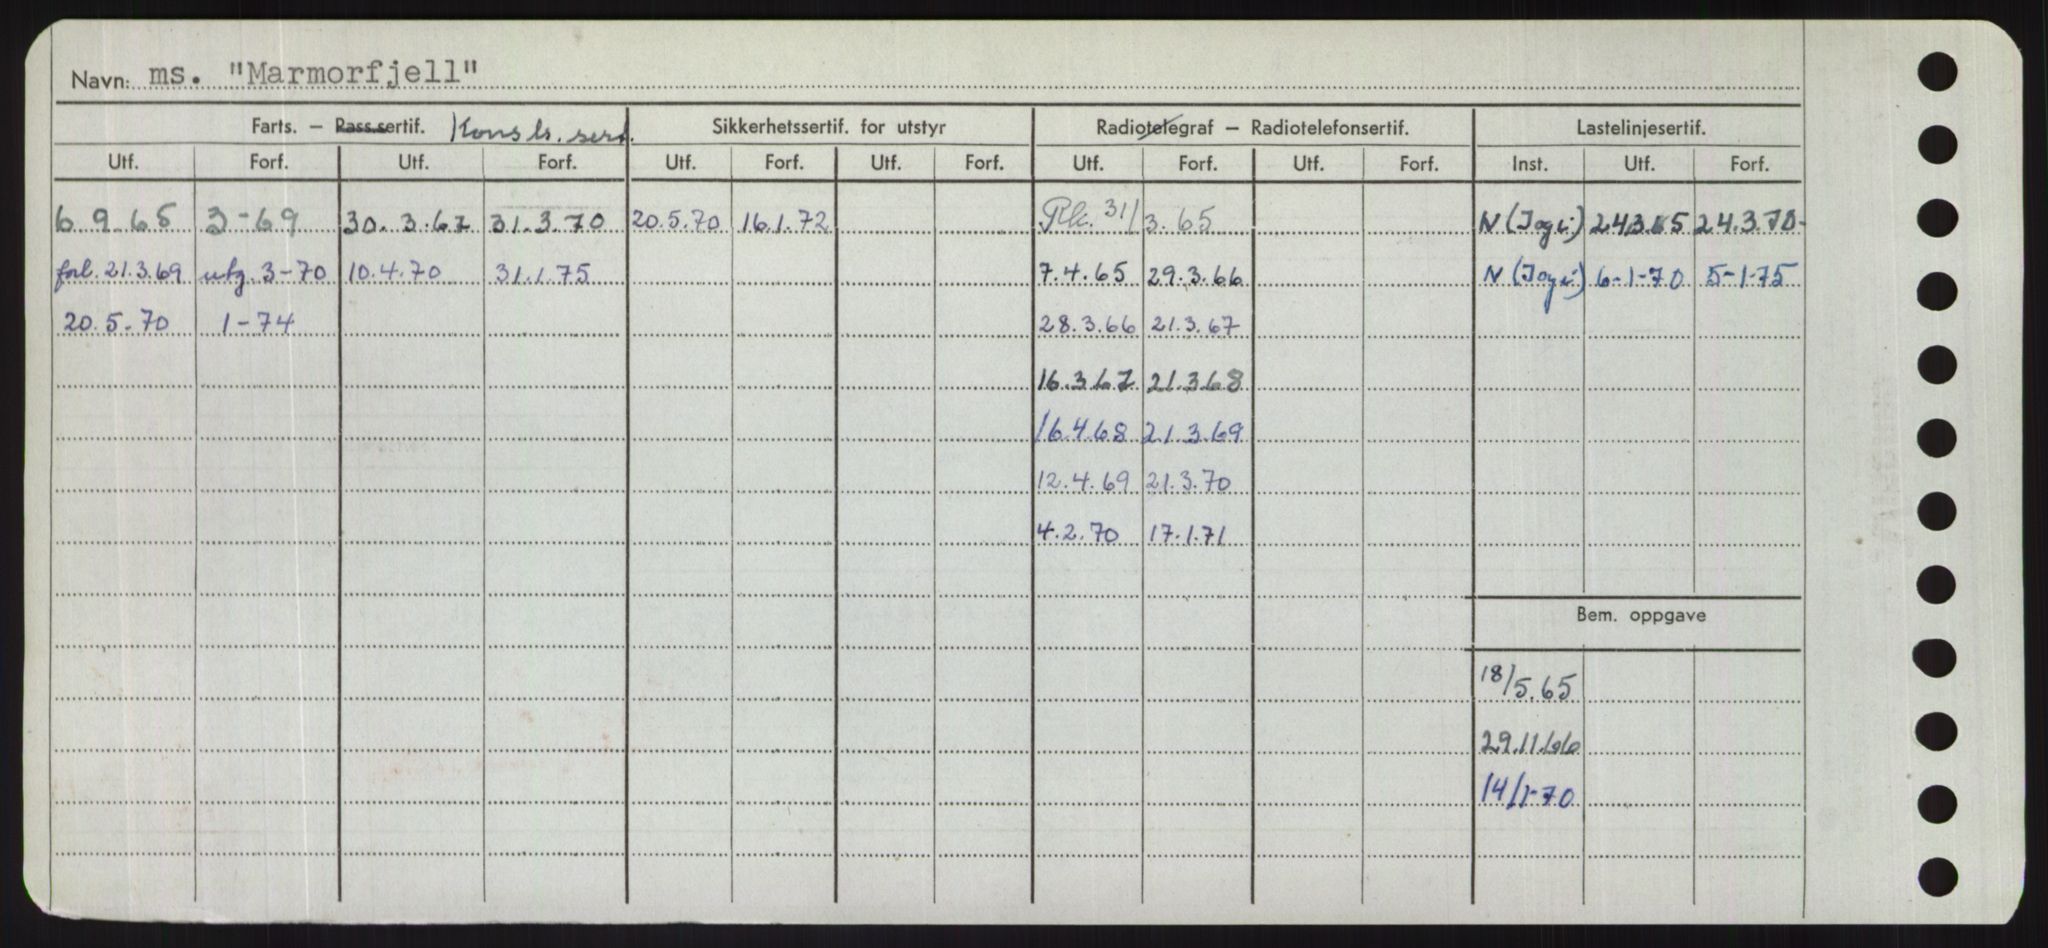 Navn: ms. "Marmorfjell"
Farts. – Pass.sertif. Konstr. sert. Sikkerhetssertif. for utstyr Radiotelegraf – Radiotelefonsertif. Lastelinjesertif.
Utf. Forf. Utf. Forf. Utf. Forf. Utf. Forf. Utf. Forf. Utf. Forf. Inst. Utf. Forf.
6.9.65 3-69 30.3.67 31.3.70 20.5.70 16.1.72 Rk. 31/3.65 N (Iogi) 24.3.65 24.3.70-
forl. 21.3.69 utg. 3-70 10.4.70 31.1.75 7.4.65 29.3.66 N (Iogi) 6-1-70 5-1-75
20.5.70 1-74 28.3.66 21.3.67
16.3.67 21.3.68
16.4.68 21.3.69
12.4.69 21.3.70
4.2.70 17.1.71
Bem. oppgave
18/5.65
29.11.66
14/1-70